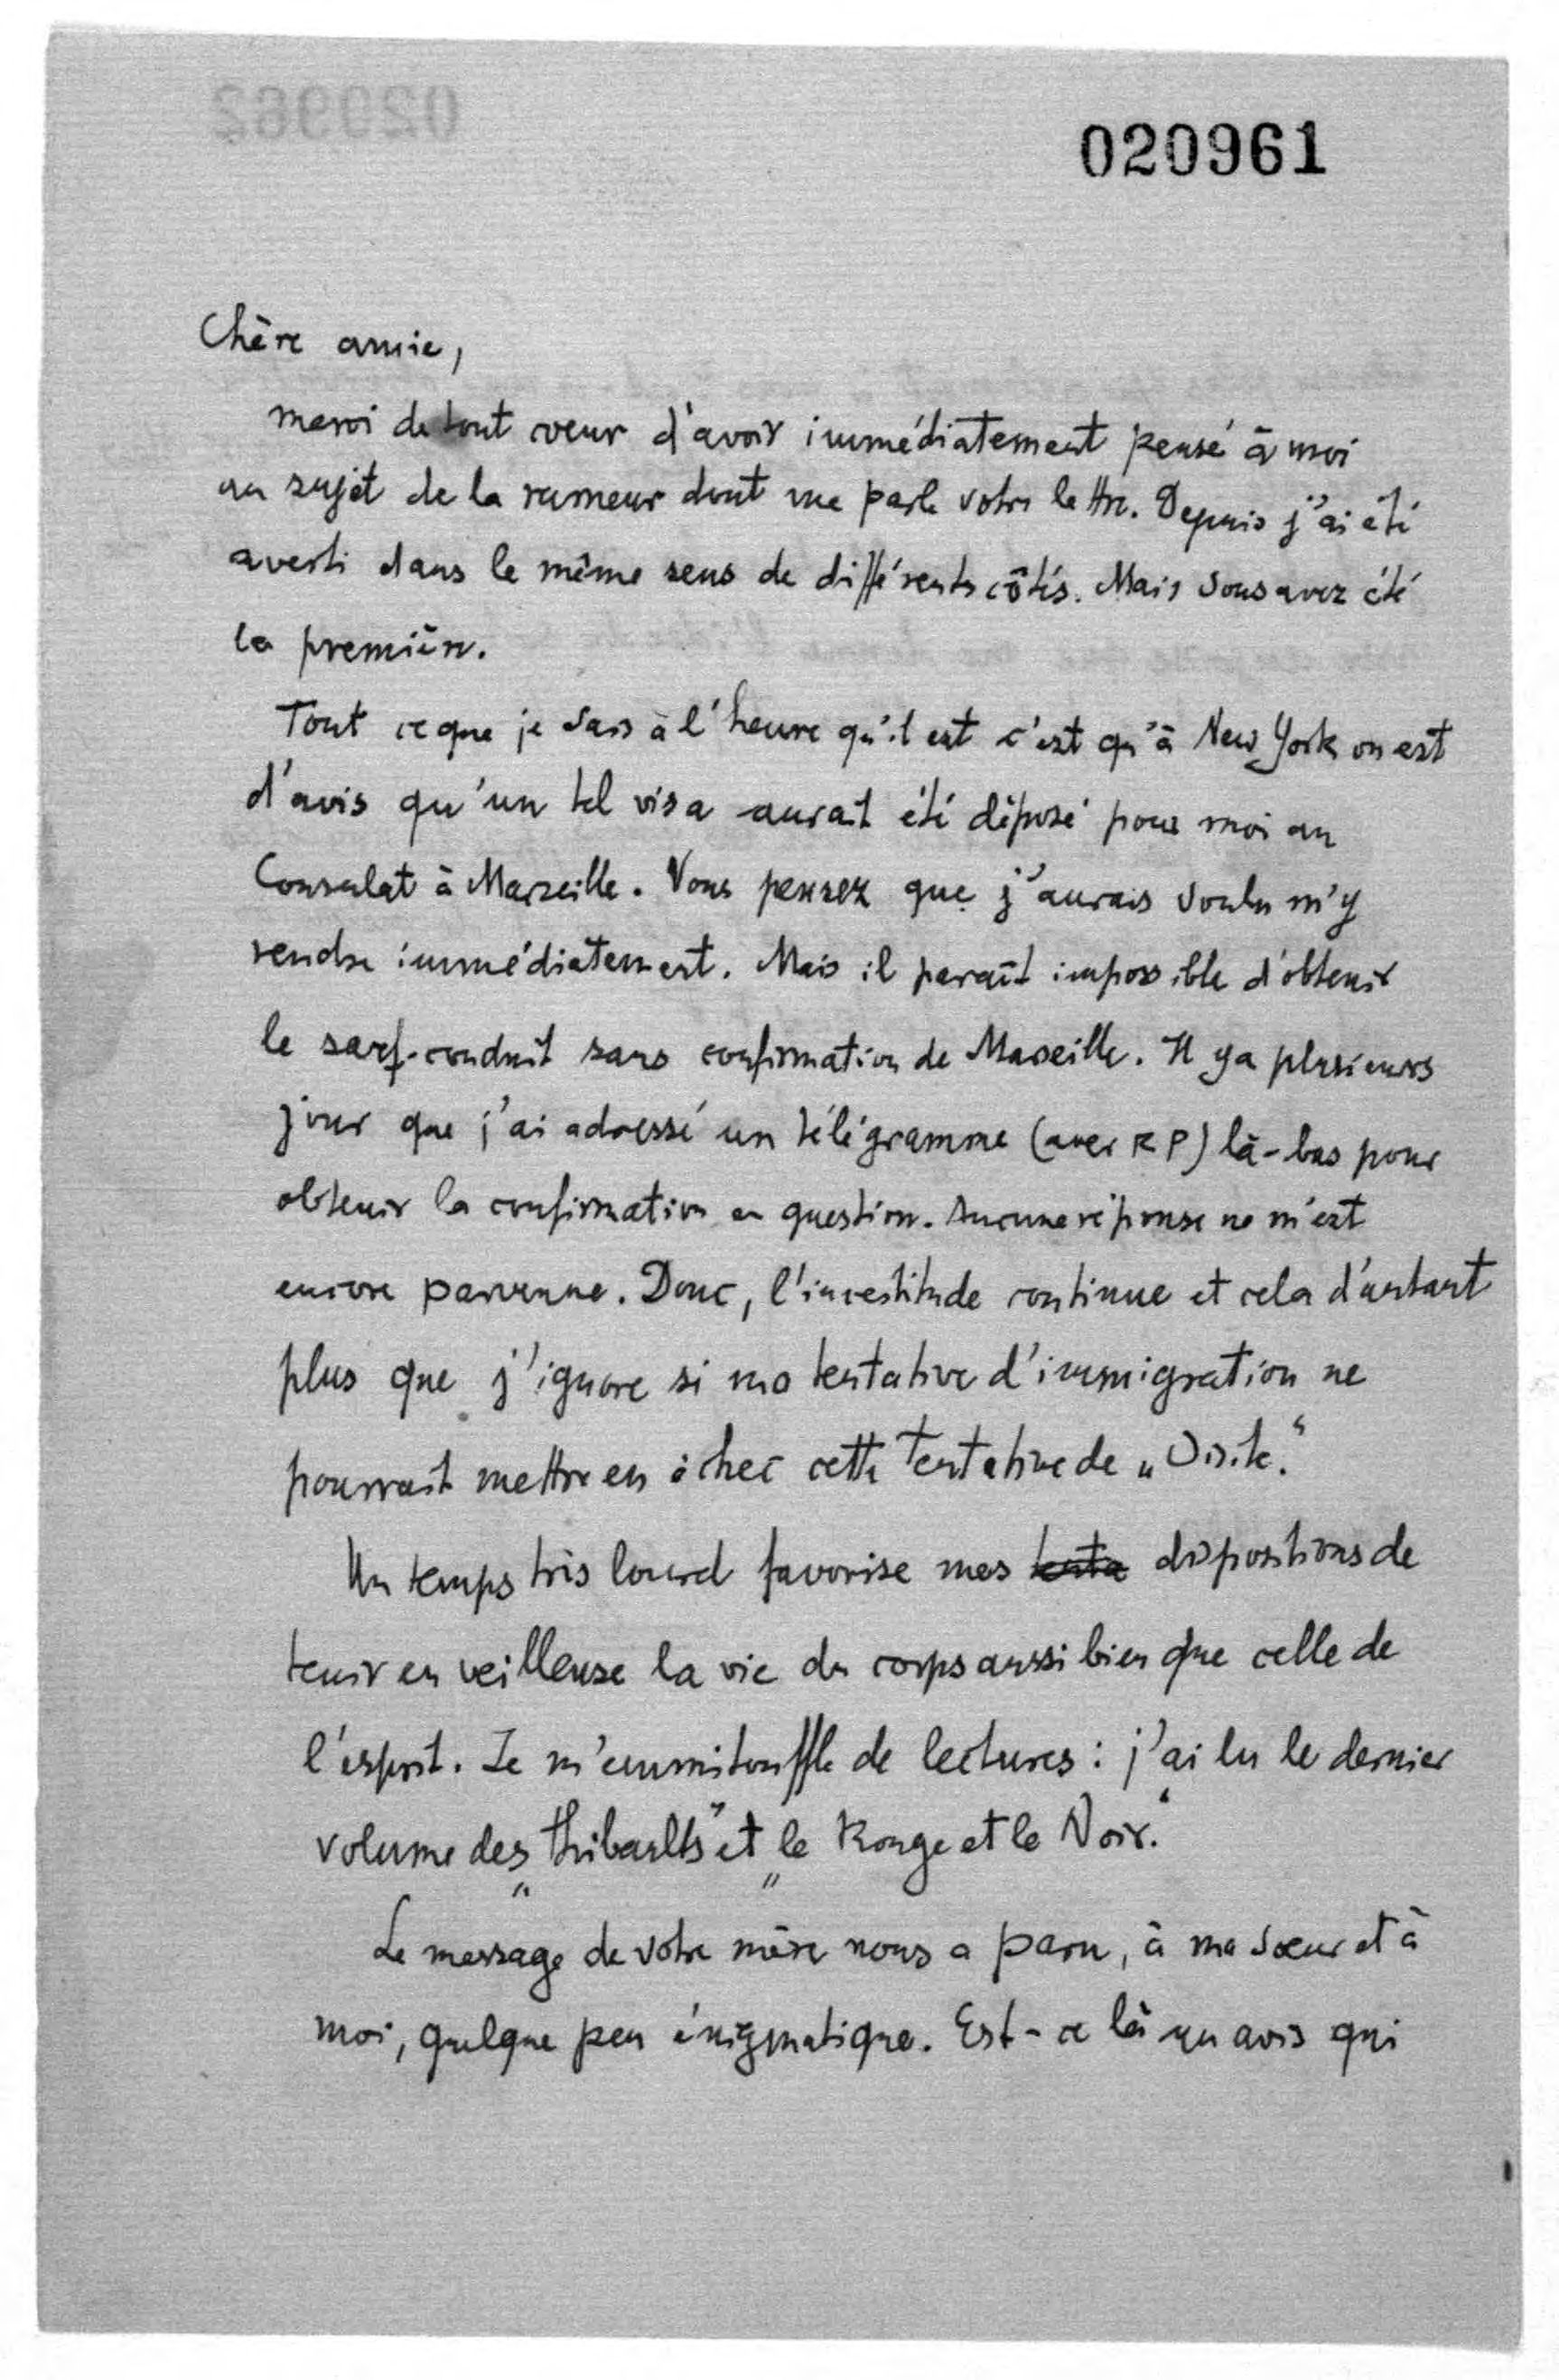 020961
Chère amie,
merci de tout cœur d'avoir immédiatement pensé à moi
au sujet de la rumeur dont me parle votre lettre. Depuis j'ai été
averti dans le même sens de différents côtés. Mais vous avez été
la première.
Tout ce que je sais à l'heure qu'il est c'est qu'à New York on est
d'avis qu'un tel visa aurait été déposé pour moi au
Consulat à Marseille. Vous pensez que j'aurais voulu m'y
rendre immédiatement. Mais il paraît impossible d'obtenir
le sauf-conduit sans confirmation de Marseille. Il y a plusieurs
jour que j'ai adressé un télégramme (avec RP) là-bas pour
obtenir la confirmation en question. Aucune réponse ne m'est
encore parvenue. Donc, l'incertitude continue et cela d'autant
plus que j'ignore si ma tentative d'immigration ne
pourrait mettre en échec cette tentative de „visite.“
Un temps très lourd favorise mes dispositions de
tenir en veilleuse la vie du corps aussi bien que celle de
l'esprit. Je m'emmitouffle de lectures : j'ai lu le dernier
volume des „Thibaults“ et „le Rouge et le Noir.“
Le message de votre mère nous a paru, à ma sœur et à
moi, quelque peu énigmatique. Est-ce là un avis qui